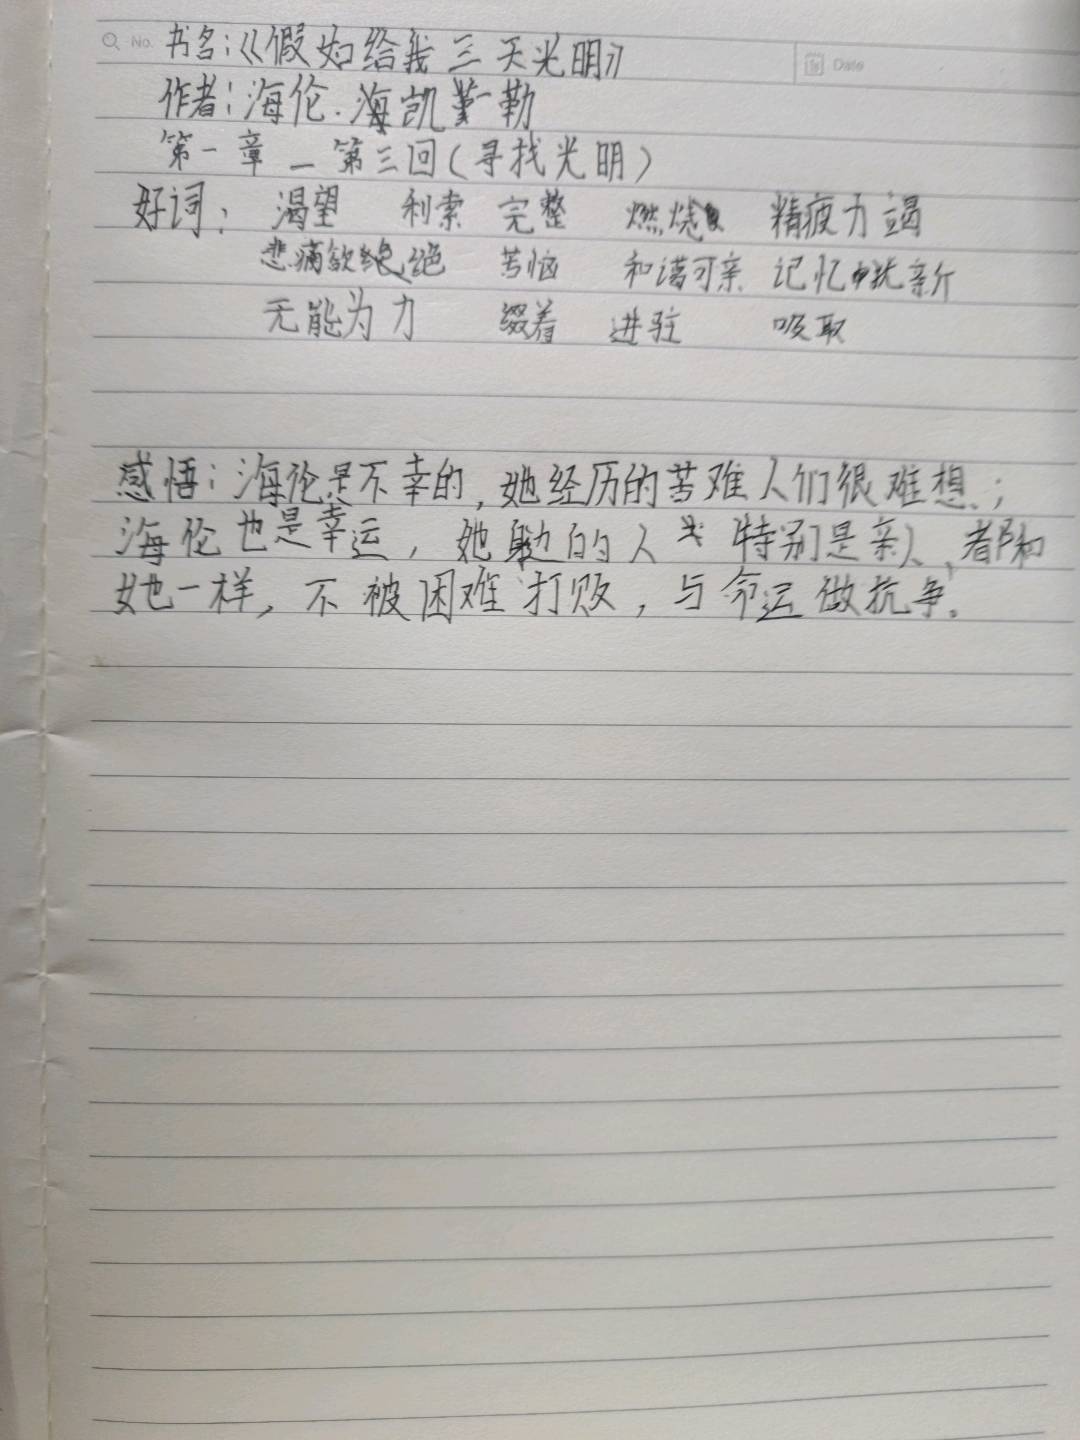 No. 书名：《假如给我三天光明》
Date
作者：海伦·凯勒
第一章 — 第三回（寻找光明）
好词： 渴望 利索 完整 燃烧 精疲力竭
悲痛欲绝 苦恼 和谐可亲 记忆犹新
无能为力 缀着 进驻 吸取
感悟：海伦是不幸的，她经历的苦难人们很难想；
海伦也是幸运，她身边的人 特别是亲人、都和
她一样，不被困难打败，与命运做抗争。